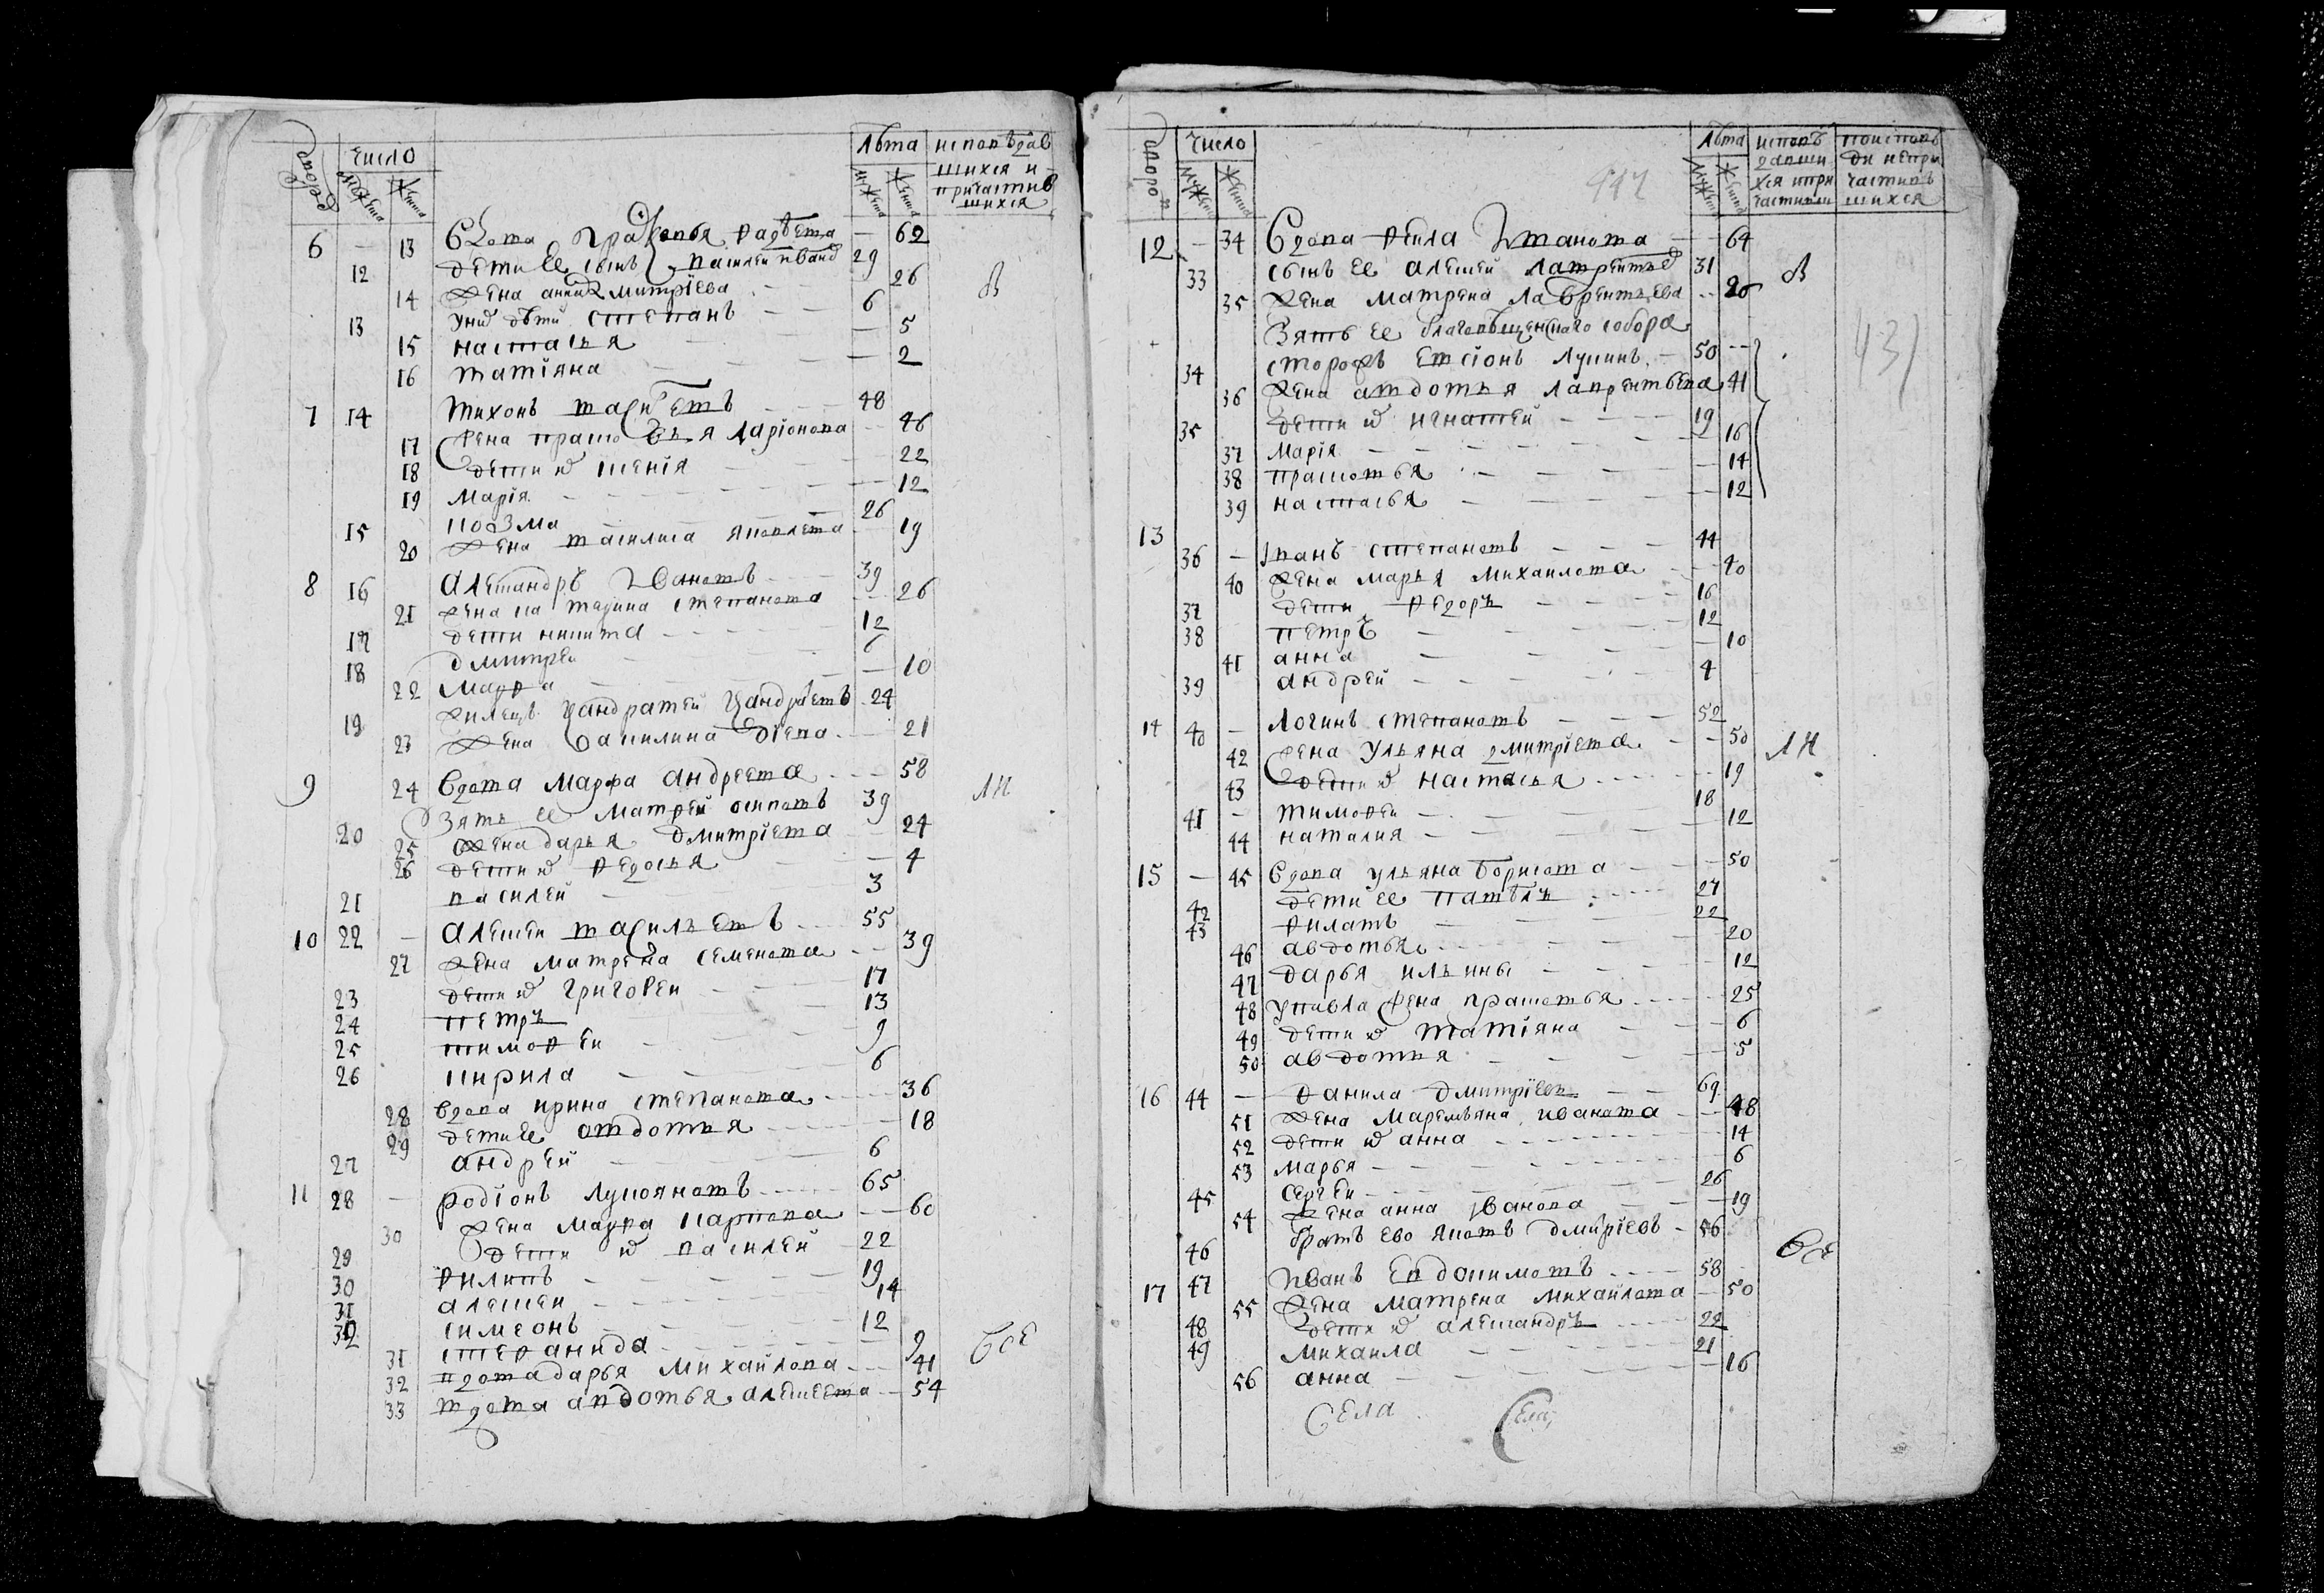 число лѣта исповѣдав
шихся и
причастив
шихся
6 — 13 вдова прасковья фадѣева — 62
12 дети ее сынъ василеи иванов 29
14 жена анна дмитріева — 26
13 у них дѣти степанъ — 6
15 настасья — 5
16 татіяна — 2
7 14 тихонъ васильевъ — 48
17 жена прасковья ларіонова — 46
18 дети их ксенія — 22
19 марія — 12
15 козма — 26
20 жена василиса яковлева 19
8 16 александръ ивановъ — 39
21 жена катерина степанова — 26
17 дети никита — 12
18 дмитреи — 6
22 марфа — 10
19 жилецъ кандратеи кандратьевъ 24
23 жена — 21
9 24 вдова марфа андреева — 58
20 зять ее матвѣй осиповъ 39
25 жена дарья дмитріева — 24
26 дети их федосья — 4
21 василей — 3
10 22 — алексеи васильевъ — 55
27 жена матрена семенова — 39
23 дети их григореи — 17
24 петръ — 13
25 тимофеи — 9
26 кирила — 6
28 вдова ирина степанова — 36
29 дети ее овдотья — 18
27 андрей — 6
11 28 — родіонъ лукояновъ — 65
30 жена мавра карпова — 60
29 дети их василей 22
30 филипъ — 19
31 алексеи — 14
32 симеонъ — 12
31 стефанида — 9 все
32 вдова дарья михаилова — 41
33 вдова авдотья алексеева — 54
число лѣта исповѣ поисповѣ
давши ди непри
хся и при частивъ
частивши шихся
442
12 — 34 вдова фекла иванова — 64
33 сынъ ее алексей лаврентьев 31
35 жена матрена лаврентьева — 20
зять ее благовѣщенскаго собора
34 сторожъ лукинъ — 50
36 жена авдотья лаврентьева 41
431
35 дети их игнатей — 19
37 марія — 16
38 прасковья — 14
39 настасья — 12
13 36 — иванъ степановъ — 44
40 жена марья михаилова — 40
37 дети федоръ — 16
38 петръ — 12
41 анна — 10
39 андрей — 4
14 40 — логинъ степановъ — 52
42 жена ульяна дмитріева — 50
43 дети их настасья — 19
41 — тимофеи — 18
44 наталия — 12
15 — 45 вдова ульяна борисова — 50
42 дети ее павелъ — 27
43 филатъ — 22
46 авдотья — 20
47 дарья ильины — 12
48 у павла жена прасковья — 25
49 дети их татіяна — 6
50 авдотья — 5
16 44 — данила дмитріевъ — 69
51 жена маремьяна иванова — 48
52 дети их анна — 14
53 марья — 6
45 сергеи — 26
54 жена анна иванова — 19
46 братъ ево яковъ дмитріевъ — 56
все
17 47 иванъ евдокимовъ — 58
55 жена матрена михаилова — 50
48 дети их александръ — 22
49 михаила — 21
56 анна — 16
села села